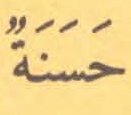 حَسَنَةٌ